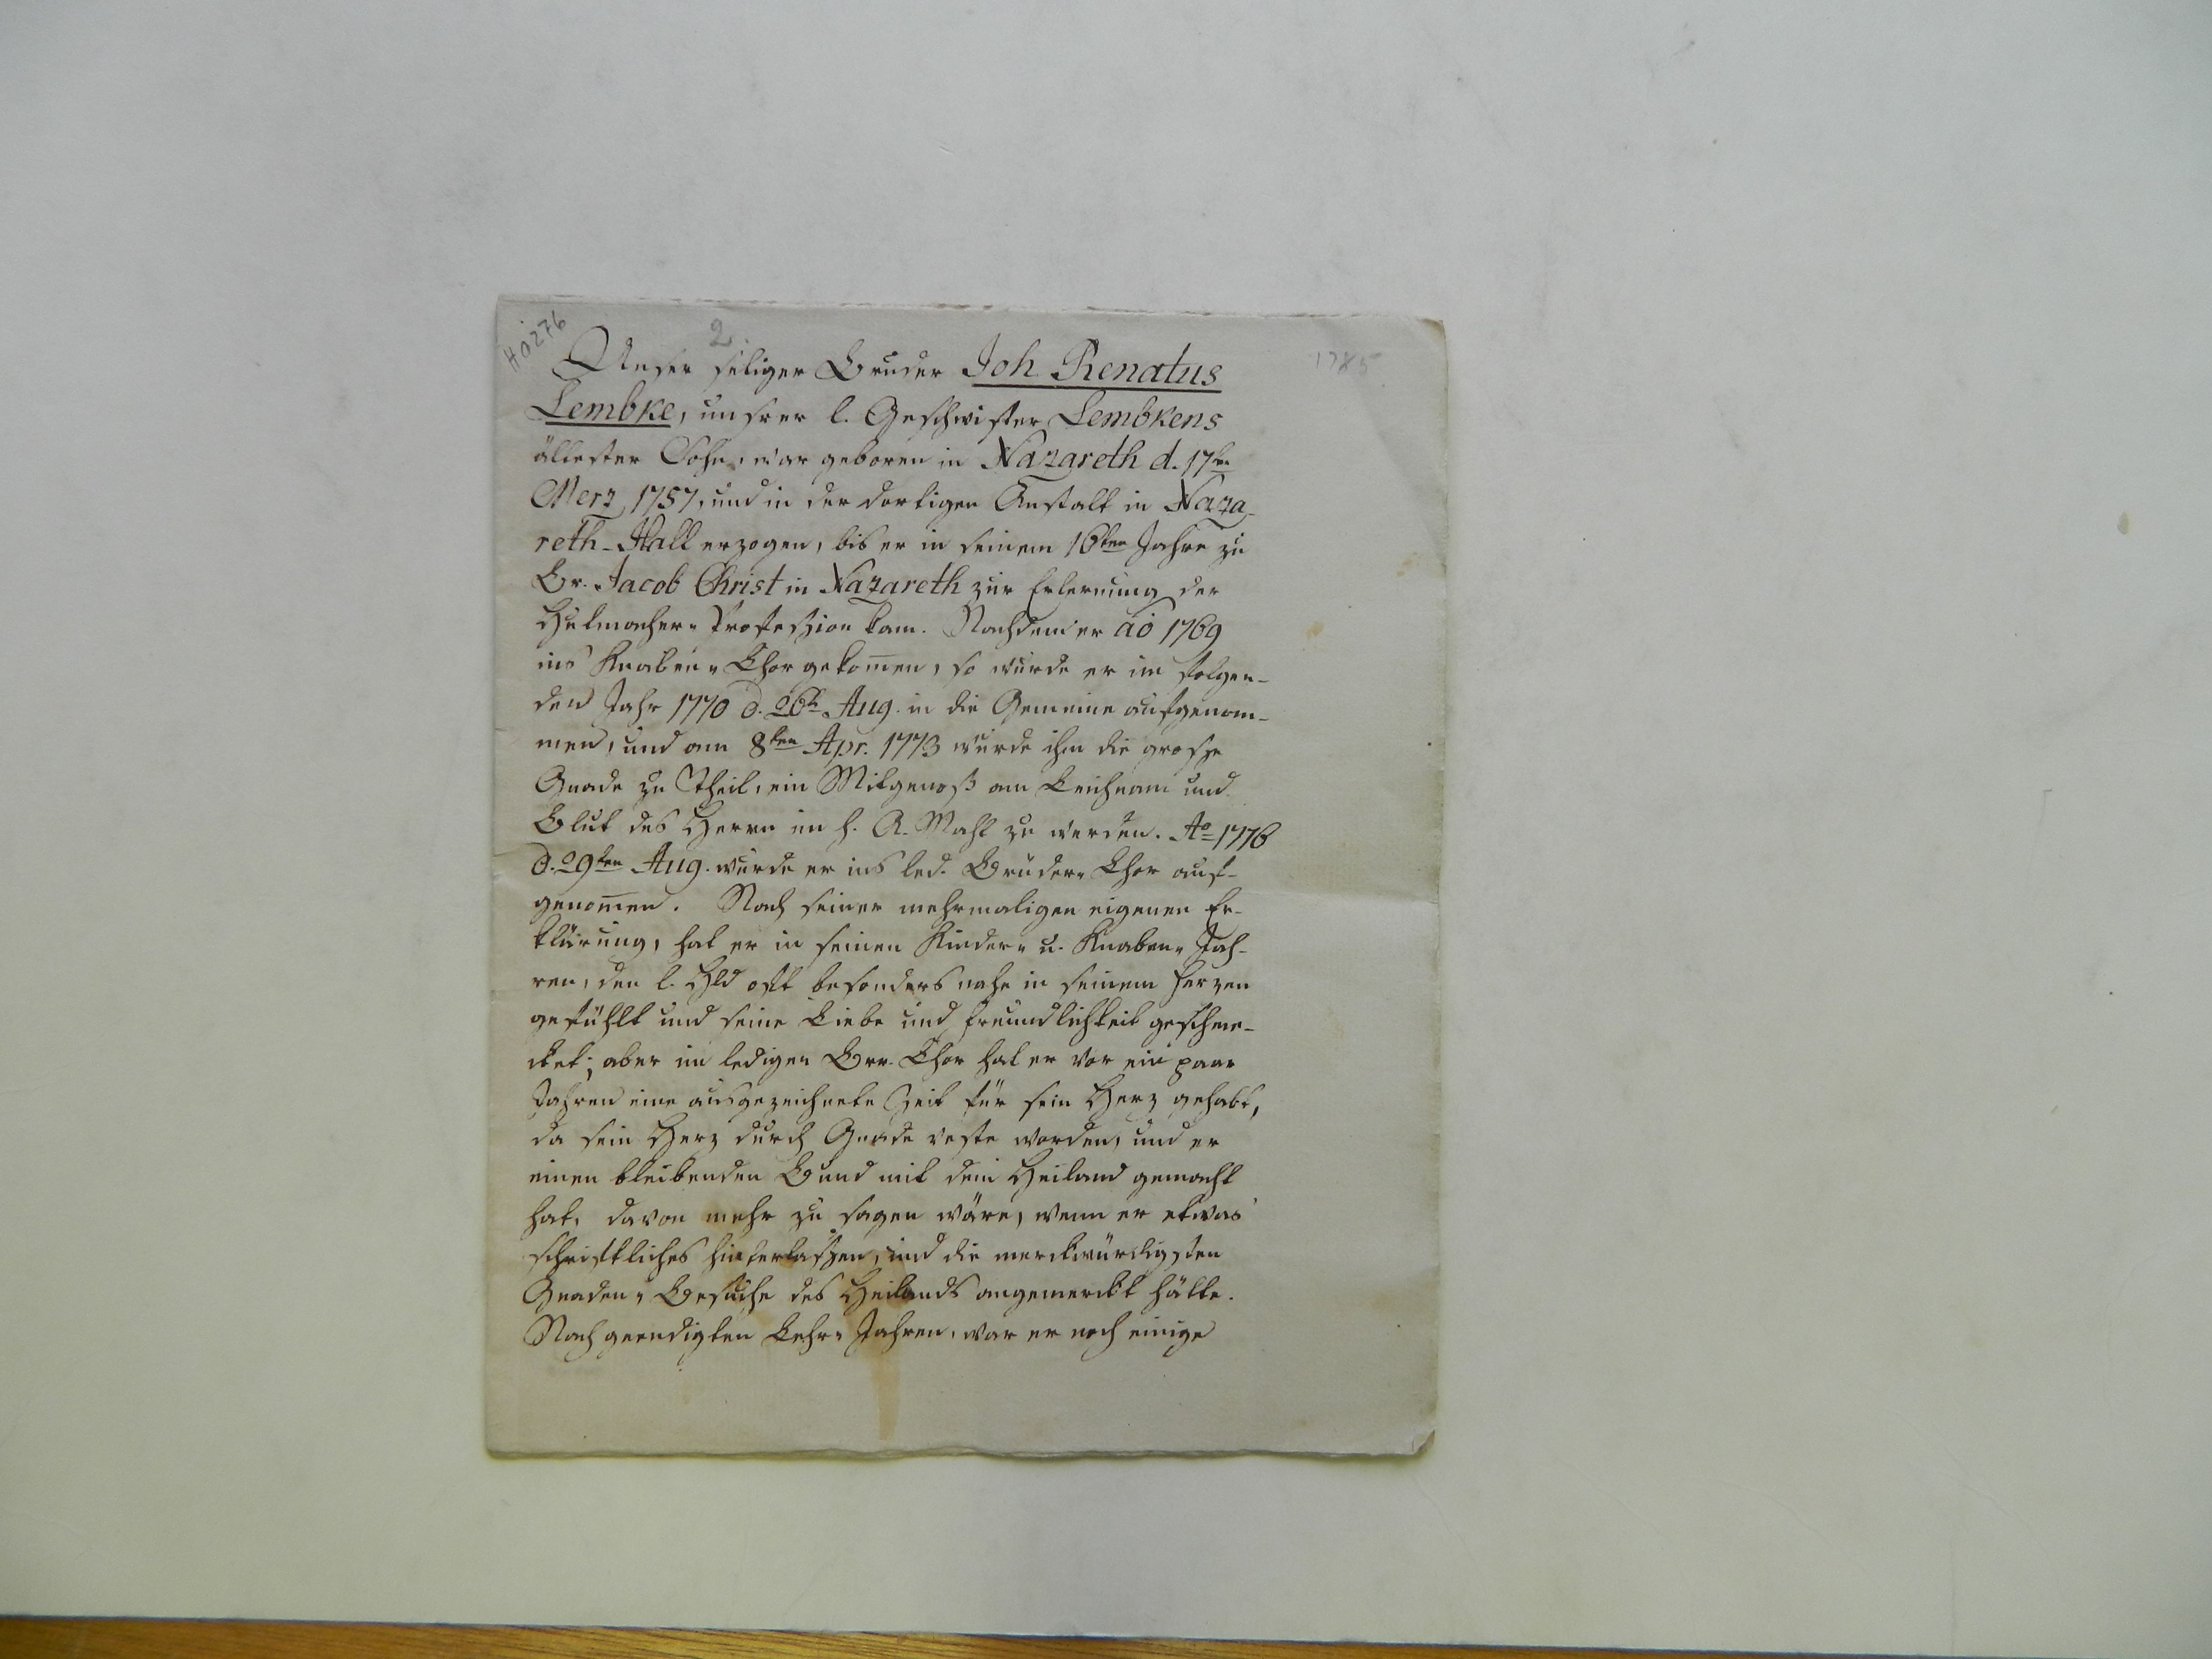 H0276
2.
1785
Unser seliger Bruder Joh Renatus
Lembke, unsrer l. Geschwister Lembkens
ältester Sohn, war geboren in Nazareth d. 17ten
Merz 1757, und in der dortigen Anstalt in Naza-
reth-Hall erzogen, bis er in seinem 16ten Jahre zu
Br. Jacob Christ in Nazareth zur Erlernung der
Hutmacher-Profeßion kam. Nachdem er ao 1769
ins Knaben-Chor gekom̅en, so wurde er im folgen-
den Jahr 1770 d. 26t. Aug. in die Gemeine aufgenom-
men, und am 8ten Apr. 1773 wurde ihm die große
Gnade zu Theil, ein Mitgenoß am Leichnam und
Blut des Herrn im h. A. Mahl zu werden. Ao 1776
d. 29ten Aug. wurde er ins led. Brüder-Chor auf-
genom̅en. Nach seiner mehrmaligen eigenen Er-
klärung, hat er in seinen Kinder- u. Knaben-Jah-
ren, den l. Hld oft besonders nahe in seinem Herzen
gefühlt und seine Liebe und Freundlichkeit geschme-
cket; aber im ledigen Brr. Chor hat er vor ein paar
Jahren eine ausgezeichnete Zeit für sein Herz gehabt,
da sein Herz durch Gnade veste worden, und er
einen bleibenden Bund mit dem Heiland gemacht
hat, davon mehr zu sagen wäre, wenn er etwas
schriftliches hinterlaßen, und die merckwürdigsten
Gnaden-Besuche des Heilands angemerckt hätte.
Nach geendigten Lehr-Jahren, war er noch einige